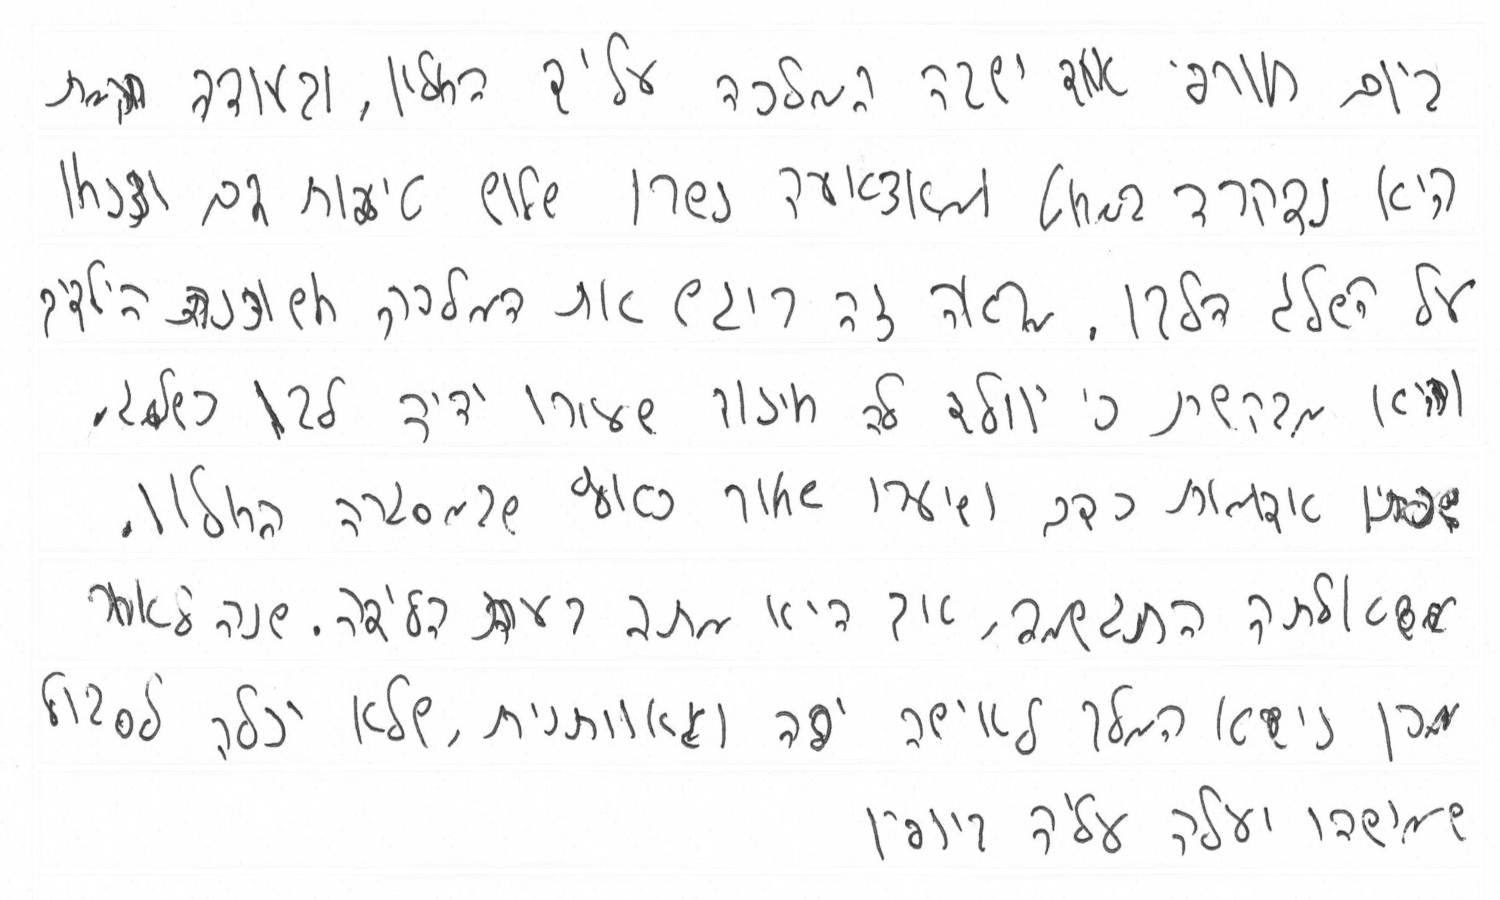 ביום חורפי אחד ישבה המלכה על יד החלון, ובעודה רוקמת
היא נדקרה במחט ומאצבעה נשרו שלוש טיפות דם וצנחו
על השלג הלבן. מראה זה ריגש את המלכה חשוכת הילדים
והיא מבקשת כי יוולד לה תינוק שעורו יהיה לבן כשלג.
שפתיו אדומות כדם ושיערו שחור כעורב שבמסגרת החלון.
משאלתה התגשמה, אך היא מתה בעת הלידה. שנה לאחר
מכן נישא המלך לאישה יפה וגאוותנית, שלא יכלה לסבול
שמישהו יעלה עליה ביופיו